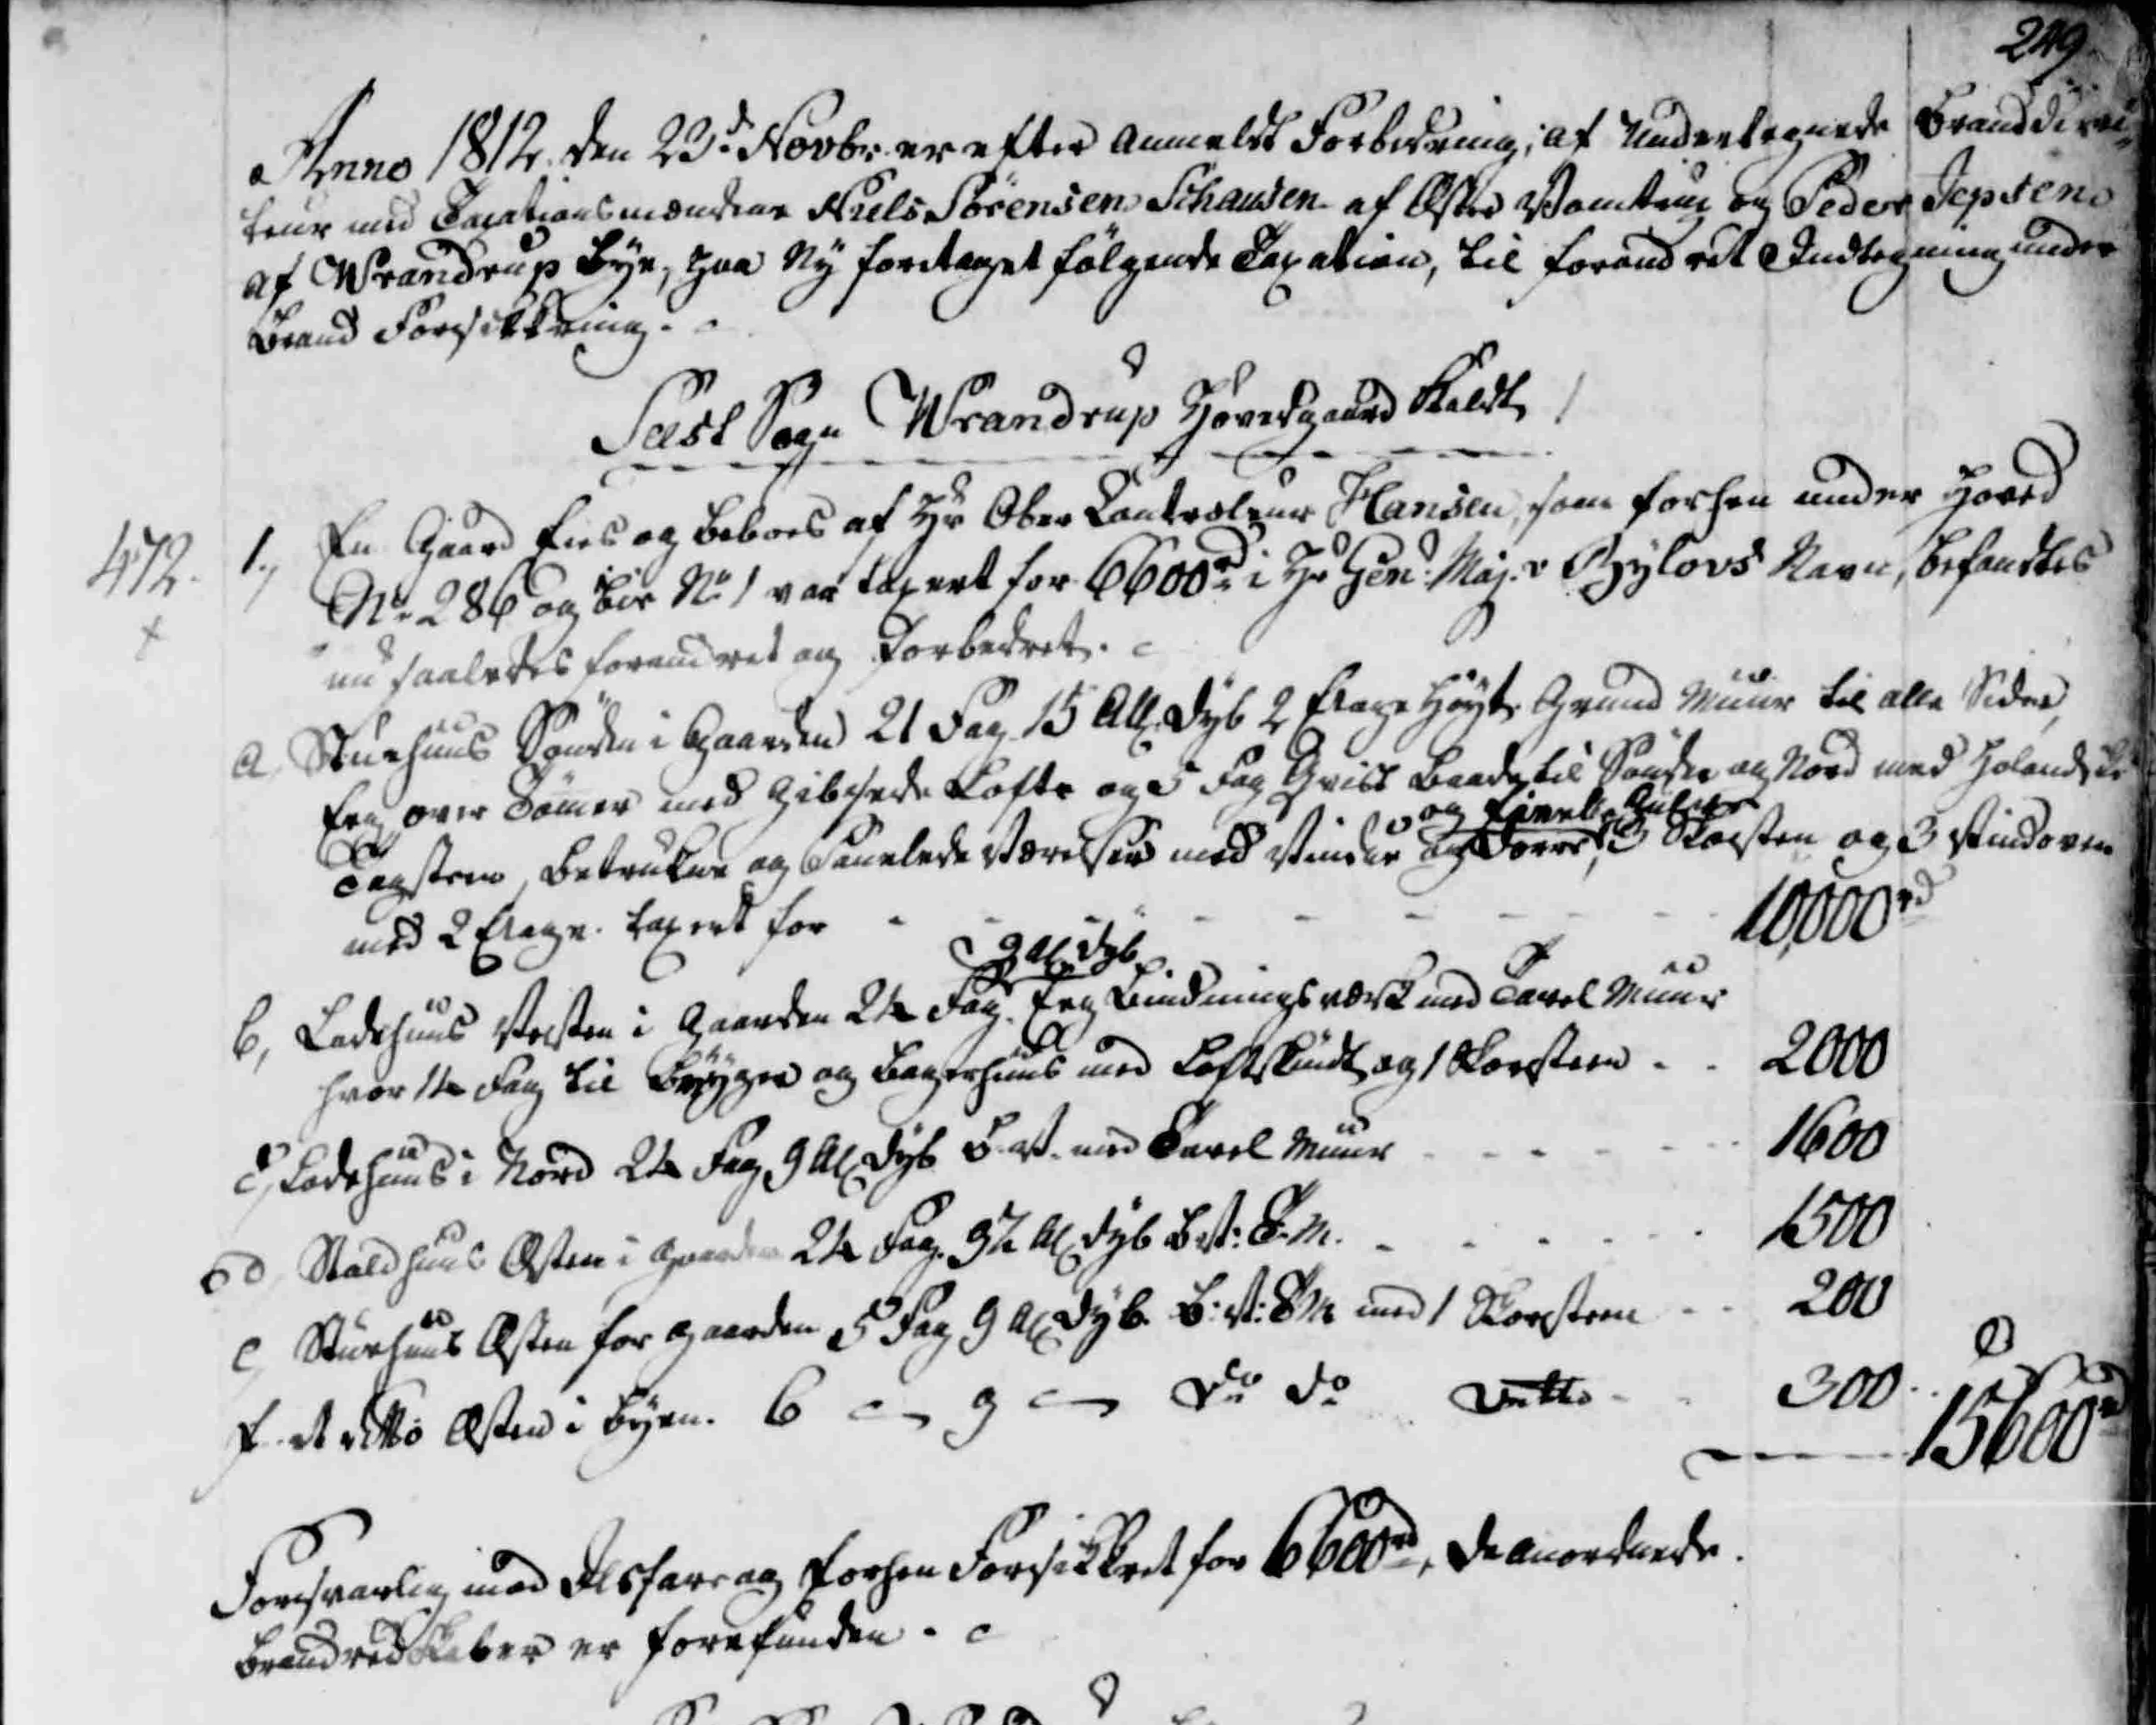 249.
Anno 1812. den 23d Novbr. er efter Anmeldt Forbedring, af Undertegnede Branddirec¬
teur med Taxationsmændene Niels Sörensen Schausen af Øster Vamdrup og Peder Jepsen
af Wrandrup Bye, paa Ny foretaget fölgende Taxation, til forandret Indtegning under
Brand Forsikkring.
Seest Sogn Wrandrup Hovedgaard kaldt
472. 1., En Gaard Eies og beboes af Hr Ober Controleur Hansen, som forhen under Hoved
No 286 og bie No 1 var taxert for 6600rd i Hr Gen: Maj. v Bylovs Navn, befandtes
nu saaledes forandret og Forbedret.
a, Stuehuus Sönden i Gaarden 21 Fag 15 All: dyb 2 Etage Höyt Grund Muur til alle Sider,
Eeg over Tömer med Gibsede Lofte og 5 Fag Qvist baade til Sönder og Nord med Holandske
Tagsteen, betrukne og Panelede Værelser med Vinduer og Dörre, 3 Skorsten og 3 Vindoven
med 2 Etage. taxert for 10,000rd
9 Al: dyb
b, Ladehuus Vesten i Gaarden 24 Fag. Eeg Bindningsværk med Tavel Muur
hvor 14 Fag til Brygger og Bagerhuus med Loftskudt og 1 Skorsteen 2000
c, Ladehuus i Nord 24 Fag 9 Al: dyb B. V. med Tavel Muur 1600
d, Staldhuus Østen i Gaarden 24 Fag. 9½ Al: dyb B. V: T. M. 1500
e, Stuehuus Østen for Gaarden 5 Fag 9 Al: dyb. B: V: T M med 1 Skorsteen 200
f. et ditto Østen i Byen. 6 — 9 — do do ditto 300
15600rd
Forsvarlig mod Ildsfare og forhen Forsikkret for 6600rd, de anordnede
Brandredskaber er forefunden.